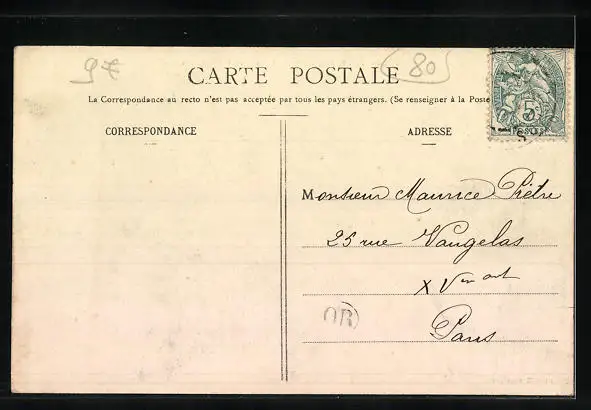 97
80
CARTE POSTALE
La Correspondance au recto n'est pas acceptée par tous les pays étrangers. (Se renseigner à la Poste
CORRESPONDANCE
ADRESSE
5c
POSTES
Monsieur Maurice Piètre
25 rue Vaugelas
XVme arrt
OR
Paris